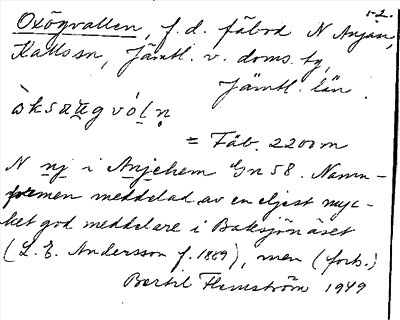 1-2.
Oxögvallen, f.d. fäbod N Anjan,
Kallssn, Jämtl. v. doms. tg,
Jämtl. län.
= Fäb. 2200 m
N nj i Anjehem Gn 58. Namn-
formen meddelad av en eljest myc-
ket god meddelare i Baksjönäset
(L. E. Andersson f. 1869), men (forts.)
Bertil Flemström 1949